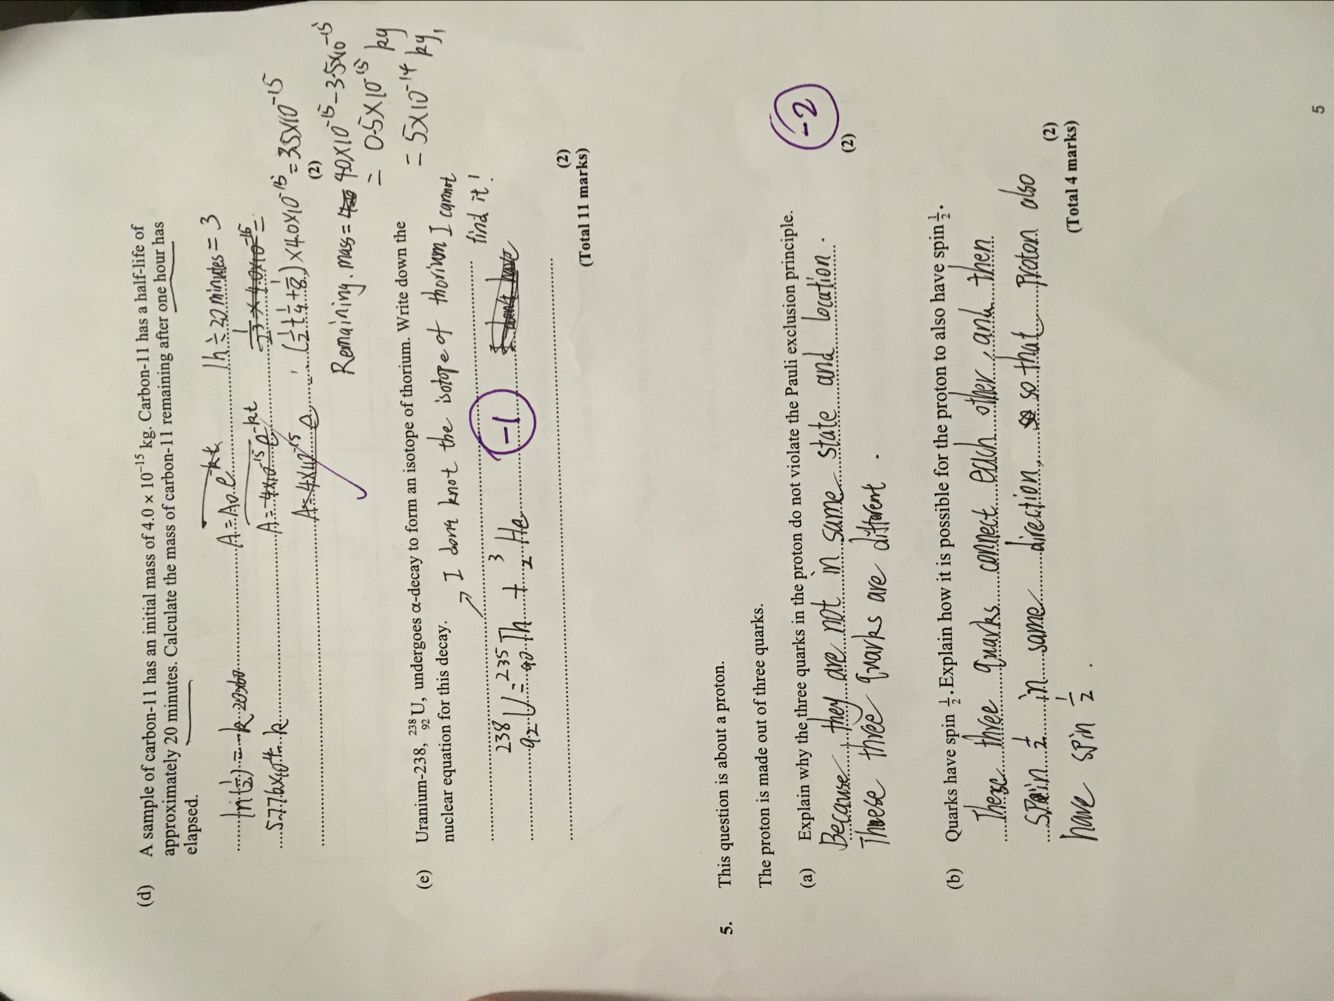 (d) A sample of carbon-11 has an initial mass of 4.0 × 10⁻¹⁵ kg. Carbon-11 has a half-life of
approximately 20 minutes. Calculate the mass of carbon-11 remaining after one hour has
elapsed.
ln(½) = -k 20x60
5.776x10⁻⁴ = k
A = A₀ e⁻ᵏᵗ
A = 4x10⁻¹⁵ e⁻ᵏᵗ
A = 4x10⁻¹⁵ e
1h ÷ 20 minutes = 3
(½ + ¼ + ⅛) x 4.0x10⁻¹⁵ = 3.5x10⁻¹⁵
(2)
Remaining. mass = 4.0x10⁻¹⁵ - 3.5x10⁻¹⁵
= 0.5x10⁻¹⁵ kg
= 5x10⁻¹⁴ kg,
(e) Uranium-238, ²³⁸₉₂U, undergoes α-decay to form an isotope of thorium. Write down the
nuclear equation for this decay.
→ I don't knot the isotope of thorium I cannot
find it!
²³⁸₉₂U = ²³⁵₉₀Th + ³₂He
-1
(2)
(Total 11 marks)
5. This question is about a proton.
The proton is made out of three quarks.
(a) Explain why the three quarks in the proton do not violate the Pauli exclusion principle.
Because they are not in same state and location.
These three quarks are different.
-2
(2)
(b) Quarks have spin ½. Explain how it is possible for the proton to also have spin ½.
These three quarks connect each other, and then
spin ½ in same direction, so that proton also
have spin ½.
(2)
(Total 4 marks)
5